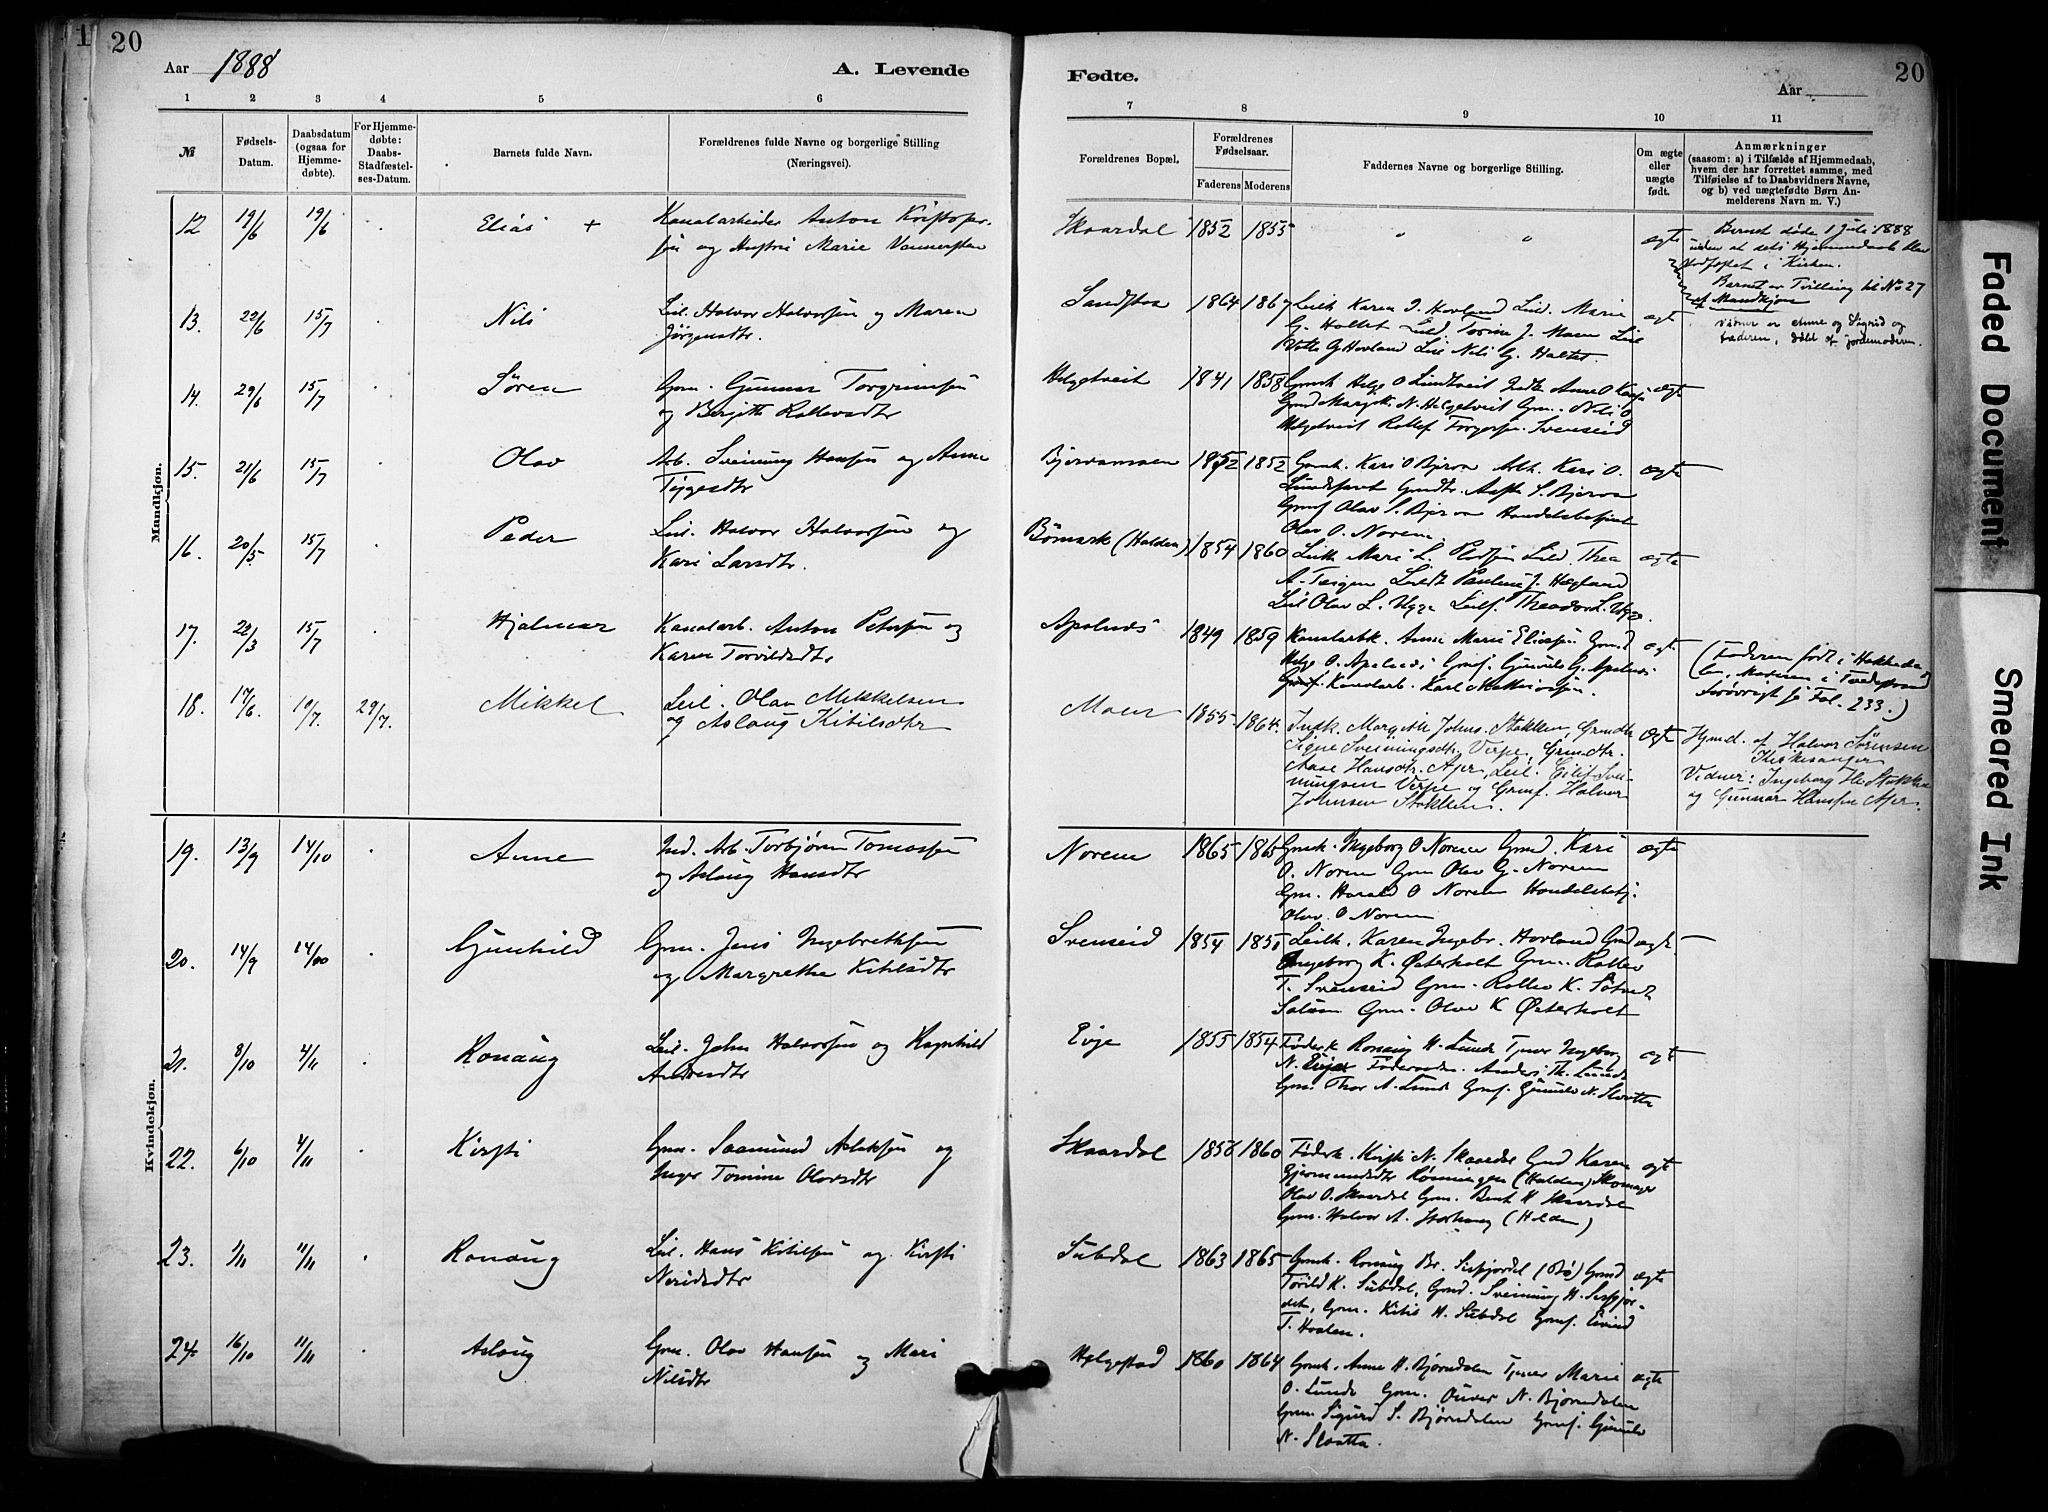 20
Aar 1888
A. Levende
Fødte.
Aar
20
1 2 3 4 5 6 7 8 9 10 11
№
Fødsels-
Datum.
Daabsdatum
(ogsaa for
Hjemme-
døbte).
For Hjemme-
døbte:
Daabs-
Stadfæstel-
ses-Datum.
Barnets fulde Navn.
Forældrenes fulde Navne og borgerlige Stilling
(Næringsvei).
Forældrenes Bopæl.
Forældrenes
Fødselsaar.
Faderens Moderens
Faddernes Navne og borgerlige Stilling.
Om ægte
eller
uægte
født.
Anmærkninger
(saasom: a) i Tilfælde af Hjemmedaab,
hvem der har forrettet samme, med
Tilføielse af to Daabsvidners Navne,
og b) ved uægtefødte Børn An-
melderens Navn m. V.)
Mandkjøn.
12 19/6 19/6 Elias +
Kanalarbeider Anton Kristofer-
sen og Marie
Skaardal 1852 1855 " " ægte
Barnet døde 1 Juli 1888
uden at dets Hjemmedaab blev
stadfæstet i Kirken.
Barnet er Tvilling til No 27
af Mandkjøn
Vidner er Anne og Sigrid og
Faderen, døbt af jordemoderen.
13. 22/6 15/7 Nils
Leil. Halvor Halvorsen og Maren
Jørgensdtr.
1864 1867 Leilk. Karen J. Hovland Leid. Marie
G. Haltet Leild Torine J. Leil
G Hovland Leil Nils G. Haltet.
ægte
14. 29/6 15/7 Søren
Grm. Gunnar Torgrimsen
og Bergitte Rollevsdtr
Helgetveit 1841 1858 Grmk Helge O Lundtveit Anne O
N. Helgetveit Grm. Nils O
Helgetveit Rollef Torgersen Svenseid
ægte
15. 21/6 15/7 Olav
Arb. Sveinung Hansen og Anne
Tygesdtr
1852 1852 Grmk. Kari O Bjerva Arb. Kari O.
Grmdtr. S. Bjerva
Grmf Olav S. Bjerva Handelsbetjent
Olav O. Norem.
ægte
16. 20/5 15/7 Peder
Leil. Halvor Halvorsen og
Kari Larsdtr.
Bømark (Holden) 1854 1860 Leilk Mari L. Leild. Thea
A. Paulus J. Hegland
Leil Olav L. Ugge Leilf. Theodor L. Ugge.
ægte
17. 22/3 15/7 Hjalmar
Kanalarb. Anton Petersen og
Karen Torvildsdtr
Apalnes 1849 1859 Kanalarbk. Anne Marie Eliesen Grmd
Helge O. Apalnes Grmf. Gunuls G. Apalnes
Kanalarb. Karl Mathiassen.
ægte
(Faderen født i
Moderen i Tvedestrand
forøvrigt se Fol. 233.)
18. 17/6. 10/7. 29/7. Mikkel
Leil. Olav Mikkelsen
og Aslaug Kitilsdtr
Moen 1855 1864. Indk. Margith Johns. Stokken, Grmdtr
Signe Sveinungsdtr. Verpe, Grmdtr.
Aase Hansdtr. Ajer, Leil. Eilif Svei-
nungsen Verpe og Grmf. Halvor
Johnsen Stokken.
Ægte
Hjmd. af Halvor Sørensen
Kirkesanger
Vidner: Ingeborg Stokken
og Gunnar Hansen Ajer.
Kvindekjøn.
19. 13/9 14/10 Anne
Ind. Arb. Torbjørn Tomassen
og Aslaug Hansdtr
Norem 1865 1865 Grmk. Ingeborg O Norem Grmd. Kari
O. Norem Grm Olav G. Norem
Grm. Harald O Norem Handelsbetj.
Olav O Norem
ægte
20. 14/9 14/10 Gunhild
Grm. Jens Ingebretsen
og Margrethe Kitilsdtr
Svenseid 1854 1851 Leilk. Karen Ingebr. Hovland Grmd
Ingeborg K. Østerholt Grm. Rollev
T. Svenseid Grm. Rollev K.
Grm. Olav K Østerholt
ægte
21. 8/10 4/11 Ronaug
Leil. John Halvorsen og Ragnhild
Andersdtr
Evje 1855 1854 Føderk Ronaug H. Lunde Tjener Ingeborg
N. Evje Føderaadsm. Anders Th. Lunde
Grm. Thor A. Lunde Grmf. Gunuls N. Slaatta
ægte
22. 6/10 4/11 Kirsti
Grm. Saamund Aslaksen og
Inger Tomine Olavsdtr
Skaardal 1856 1860 Føderk. Kirsti N. Skaardal Grmd Karen
Gjermundsdtr Rønningen (Holden) Skomager
Olav O. Skaardal Grm. Bent H Skaardal
Grm. Halvor A. (Holden)
ægte
23. 1/11 11/11 Ronaug
Leil. Hans Kitilsen og Kirsti
Neridsdtr
Subdal 1863 1865 Grmk. Ronaug Br. (Bø) Grmd
Torild K. Subdal, Grmd. Sveinung H.
Grm. Kitil H. Subdal Grmf. Eivind
T. Hvalen.
ægte
24 16/10 11/11 Aslaug
Grm. Olav Hansen og Mari
Nilsdtr
Helgestad 1860 1864 Grmk. Anne H. Bjørndalen Tjener Marie
O. Lunde Grm. N. Bjørndalen
Grm. Sigurd S. Bjørndalen Grmf. Gunuls
N. Slaatta.
ægte
Faded Document
Smeared Ink